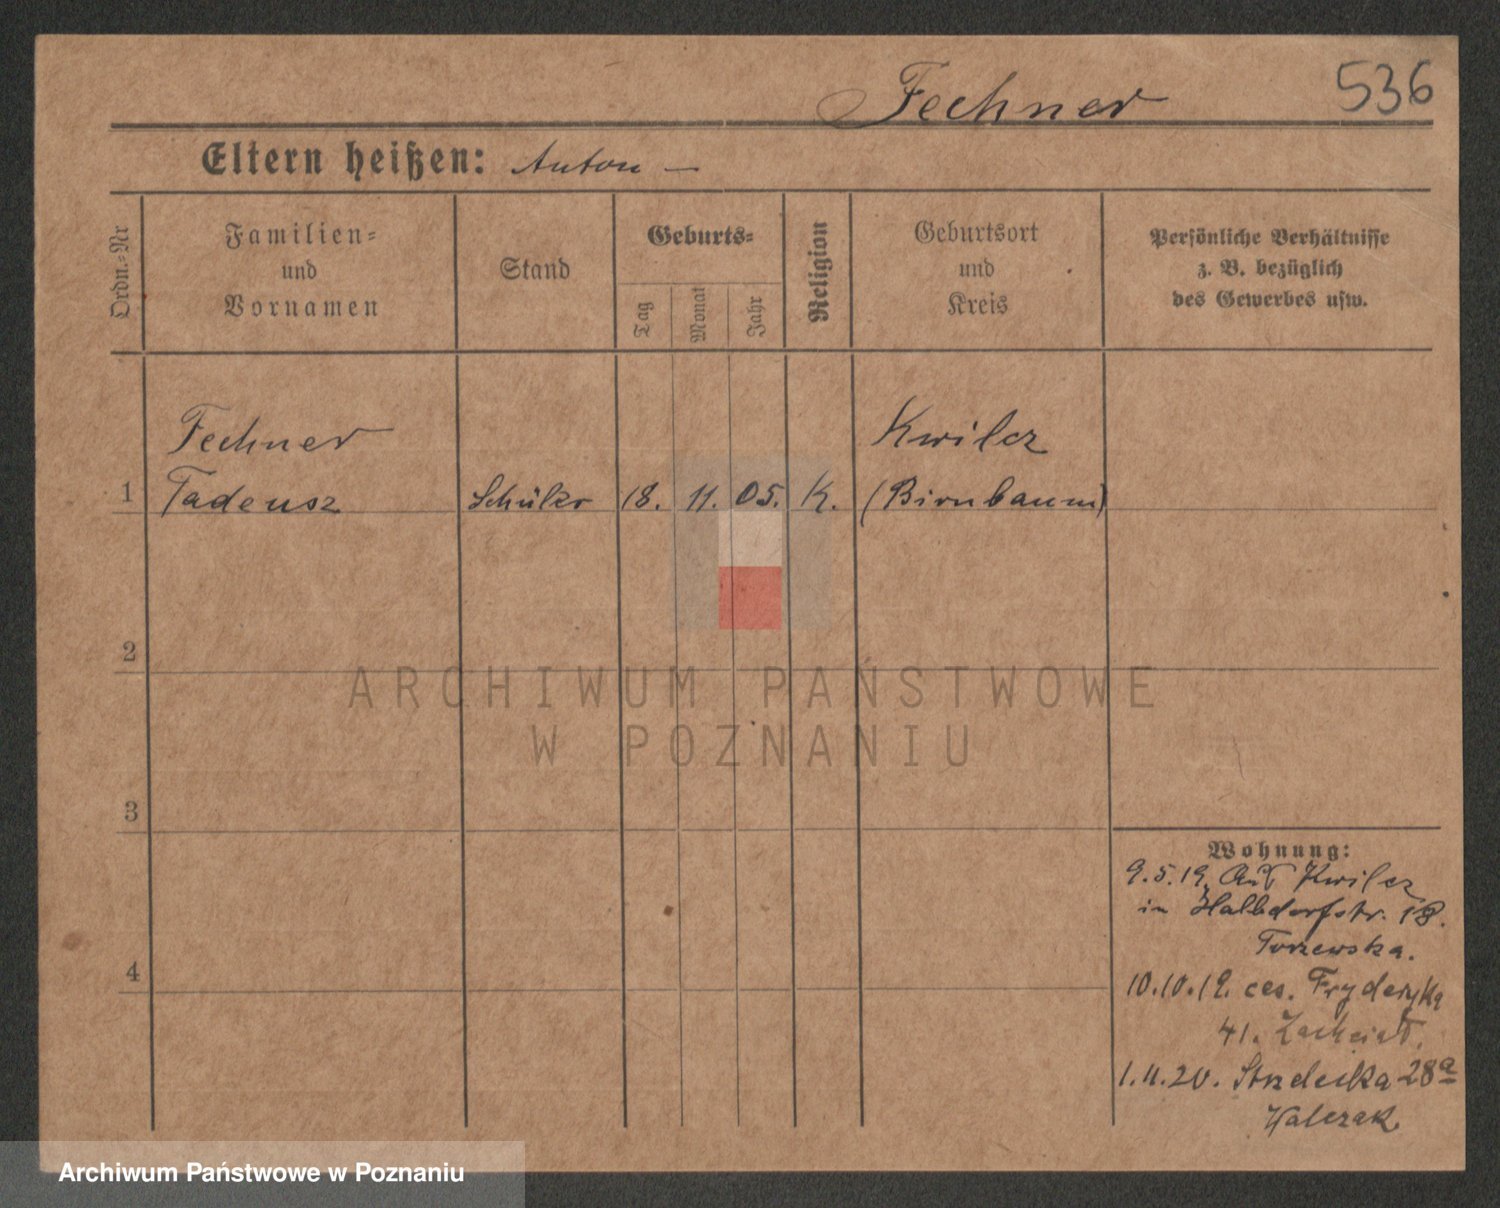 Fechner
536
Eltern heißen: Anton —
Ordn.-Nr
Familien-
und
Vornamen
Stand
Geburts-
Tag
Monat
Jahr
Religion
Geburtsort
und
Kreis
Persönliche Verhältnisse
z. B. bezüglich
des Gewerbes usw.
Fechner
Kwilcz
1 Tadeusz Schüler 18. 11. 05. K. (Birnbaum)
2
ARCHIWUM PAŃSTWOWE
W POZNANIU
3
Wohnung:
9.5.19. Aus Kwilcz
in Halbdorfstr. 18.
Torzewska.
10.10.19. ces. Fryderyka
4
41.
1.11.20. Strzelecka 28a
Walczak
Archiwum Państwowe w Poznaniu